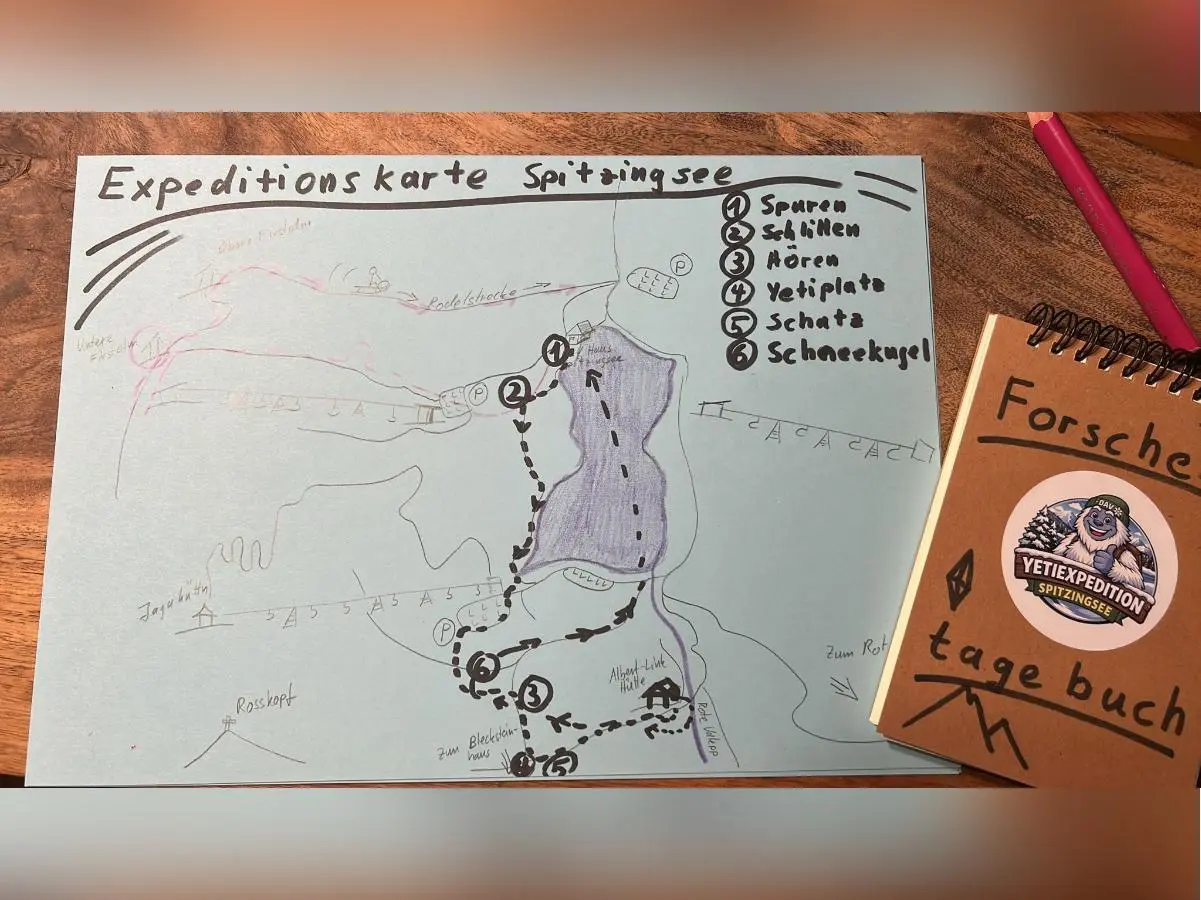 Expeditionskarte Spitzingsee
① Spuren
② Schlitten
③ Hören
④ Yetiplatz
⑤ Schatz
⑥ Schneekugel
Obere Firstalm
P
Rodelstrecke
Untere
Firstalm
1
Haus
Spitzingsee
2
P
Jagahüttn
P
6
3
Albert-Link
Hütte
Zum Rot
Rosskopf
Zum Bleckstein-
haus
Rote Valepp
4
5
Forsche
DAV
YETIEXPEDITION
SPITZINGSEE
tagebuch